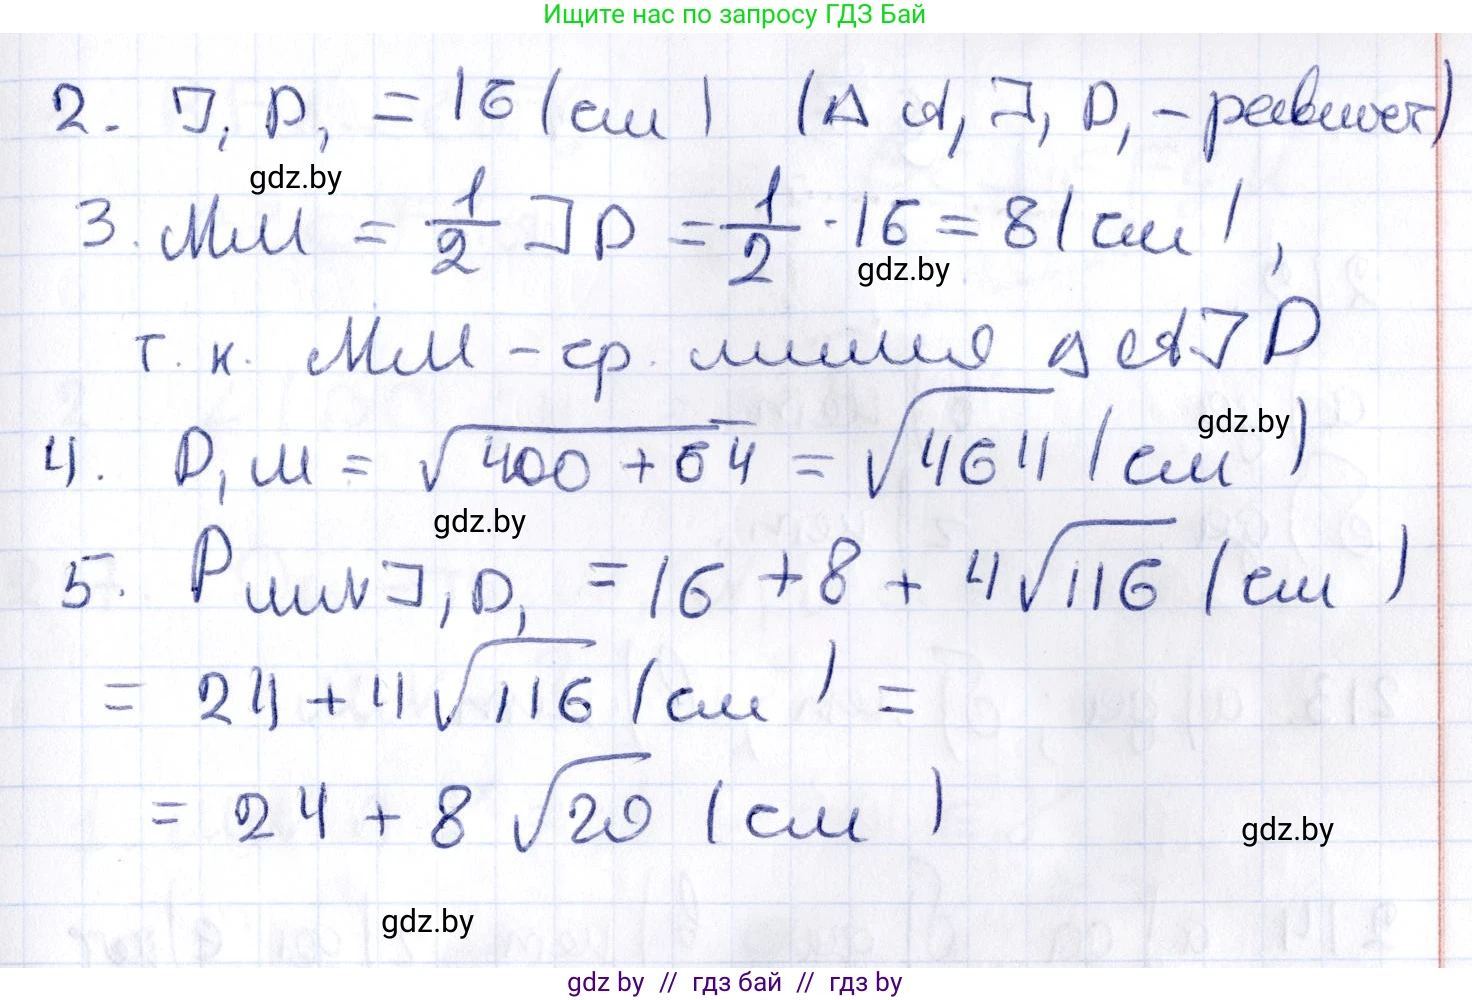 Ищите нас по запросу ГДЗ Бай
2. J₁D₁ = 16 (см) (Δ A₁J₁D₁ - равност)
gdz.by
3. MM = 1/2 JD = 1/2 · 16 = 8 (см),
gdz.by
т.к. MM - ср. линия Δ AJD
gdz.by
4. D₁M = √400 + 64 = √464 (см)
gdz.by
5. P J₁D₁ = 16 + 8 + 4√116 (см)
= 24 + 4√116 (см) =
= 24 + 8√29 (см)
gdz.by
gdz.by
gdz by // гдз бай // гдз by